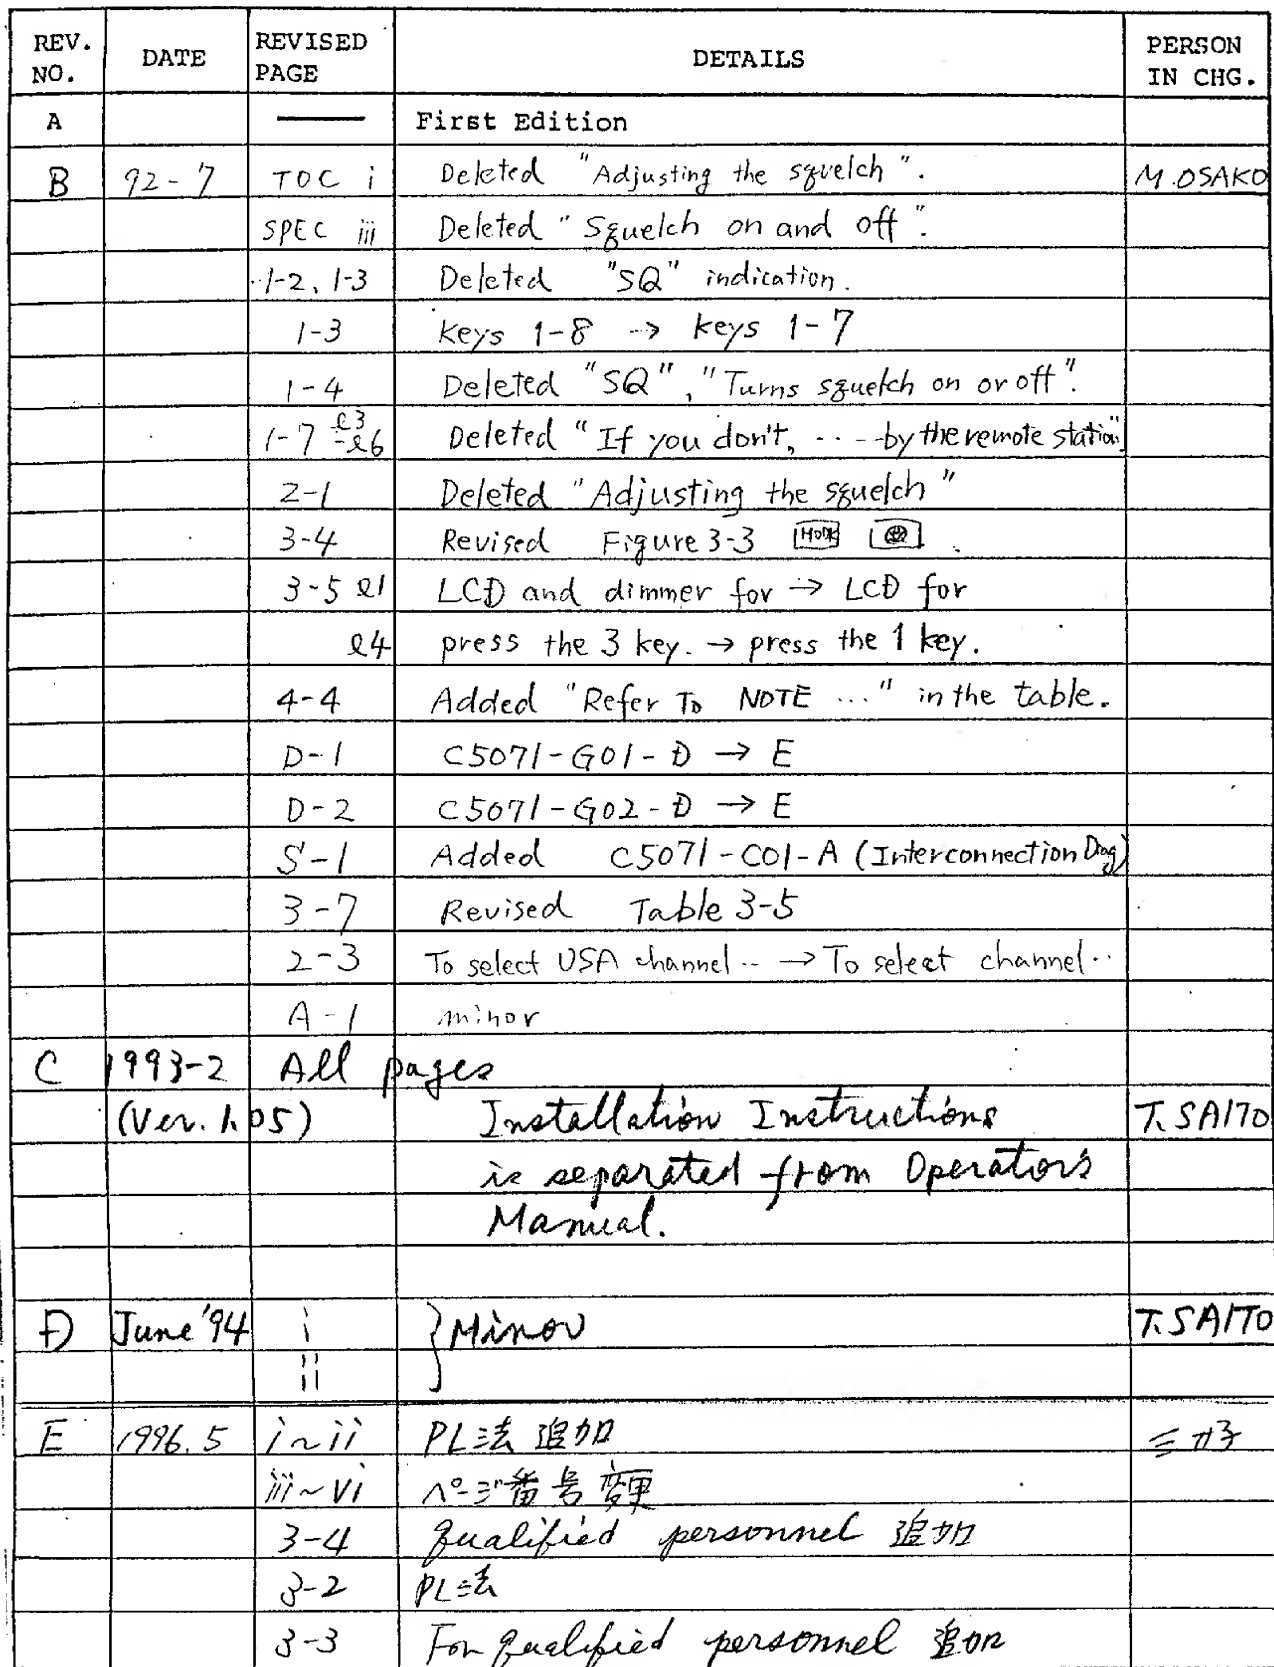 REV. NO. DATE REVISED PAGE DETAILS PERSON IN CHG.
A — First Edition
B 92-7 TOC i Deleted "Adjusting the squelch". M.OSAKO
SPEC iii Deleted "Squelch on and off".
1-2, 1-3 Deleted "SQ" indication.
1-3 keys 1-8 → keys 1-7
1-4 Deleted "SQ", "Turns squelch on or off".
1-7 ℓ3-ℓ6 Deleted "If you don't, ---- by the remote station".
2-1 Deleted "Adjusting the squelch"
3-4 Revised Figure 3-3 HOOK
3-5 ℓ1 LCD and dimmer for → LCD for
ℓ4 press the 3 key. → press the 1 key.
4-4 Added "Refer To NOTE ..." in the table.
D-1 C5071-G01-D → E
D-2 C5071-G02-D → E
S-1 Added C5071-C01-A (Interconnection Diag)
3-7 Revised Table 3-5
2-3 To select USA channel.. → To select channel..
A-1 minor
C 1993-2 All pages
(Ver. 1.05) Installation Instructions T.SAITO
is separated from Operator's
Manual.
D June '94 i } Minor T.SAITO
ii
E 1996.5 i~ii PL法 追加
iii~vi ページ番号変更
3-4 qualified personnel 追加
3-2 PL法
3-3 For qualified personnel 追加